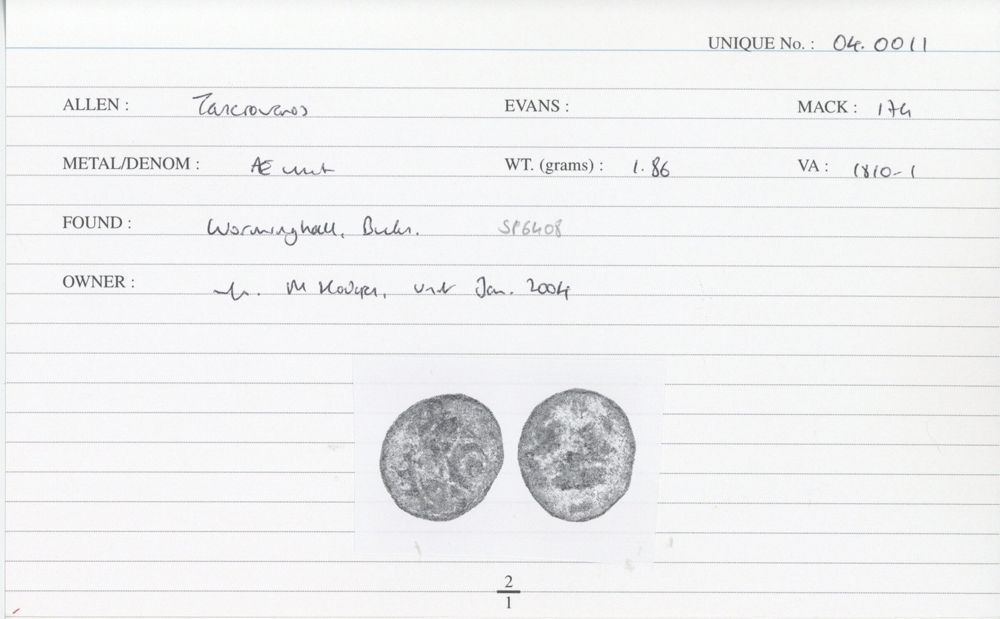 UNIQUE No. : 04.0011
ALLEN : Tasciovanos EVANS : MACK : 174
METAL/DENOM : Æ unit WT. (grams) : 1.86 VA : 1810-1
FOUND : Worminghall, Bucks. SP6408
OWNER : M Jan. 2004
2
1